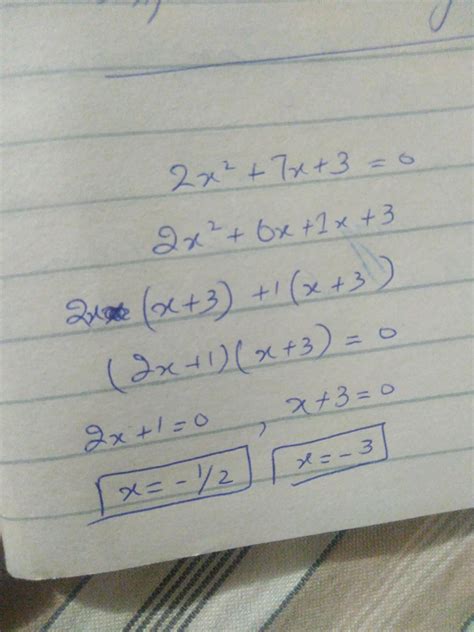 2x² + 7x + 3 = 0
2x² + 6x + 1x + 3
2x (x + 3) + 1(x + 3)
(2x + 1)(x + 3) = 0
2x + 1 = 0 , x + 3 = 0
x = - 1/2 x = - 3